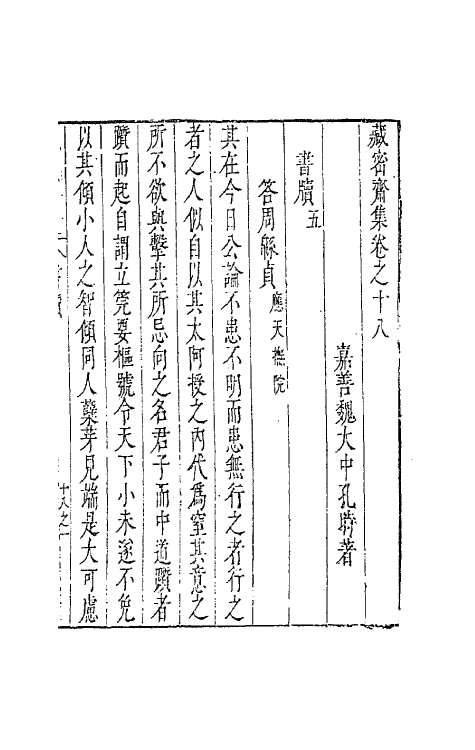 藏密齋集卷之十八
嘉善魏大中孔時著
書牘五
答周緜貞應天撫院
其在今日公論不患不明而患無行之者行之
者之人似自以其太阿授之內代爲窒其意之
所不欲與擊其所忌向之名君子而中道躓者
躓而起自謂立筦要樞號令天下小未遂不免
以其傾小人之智傾同人蘖芽見端是大可慮
十八之一